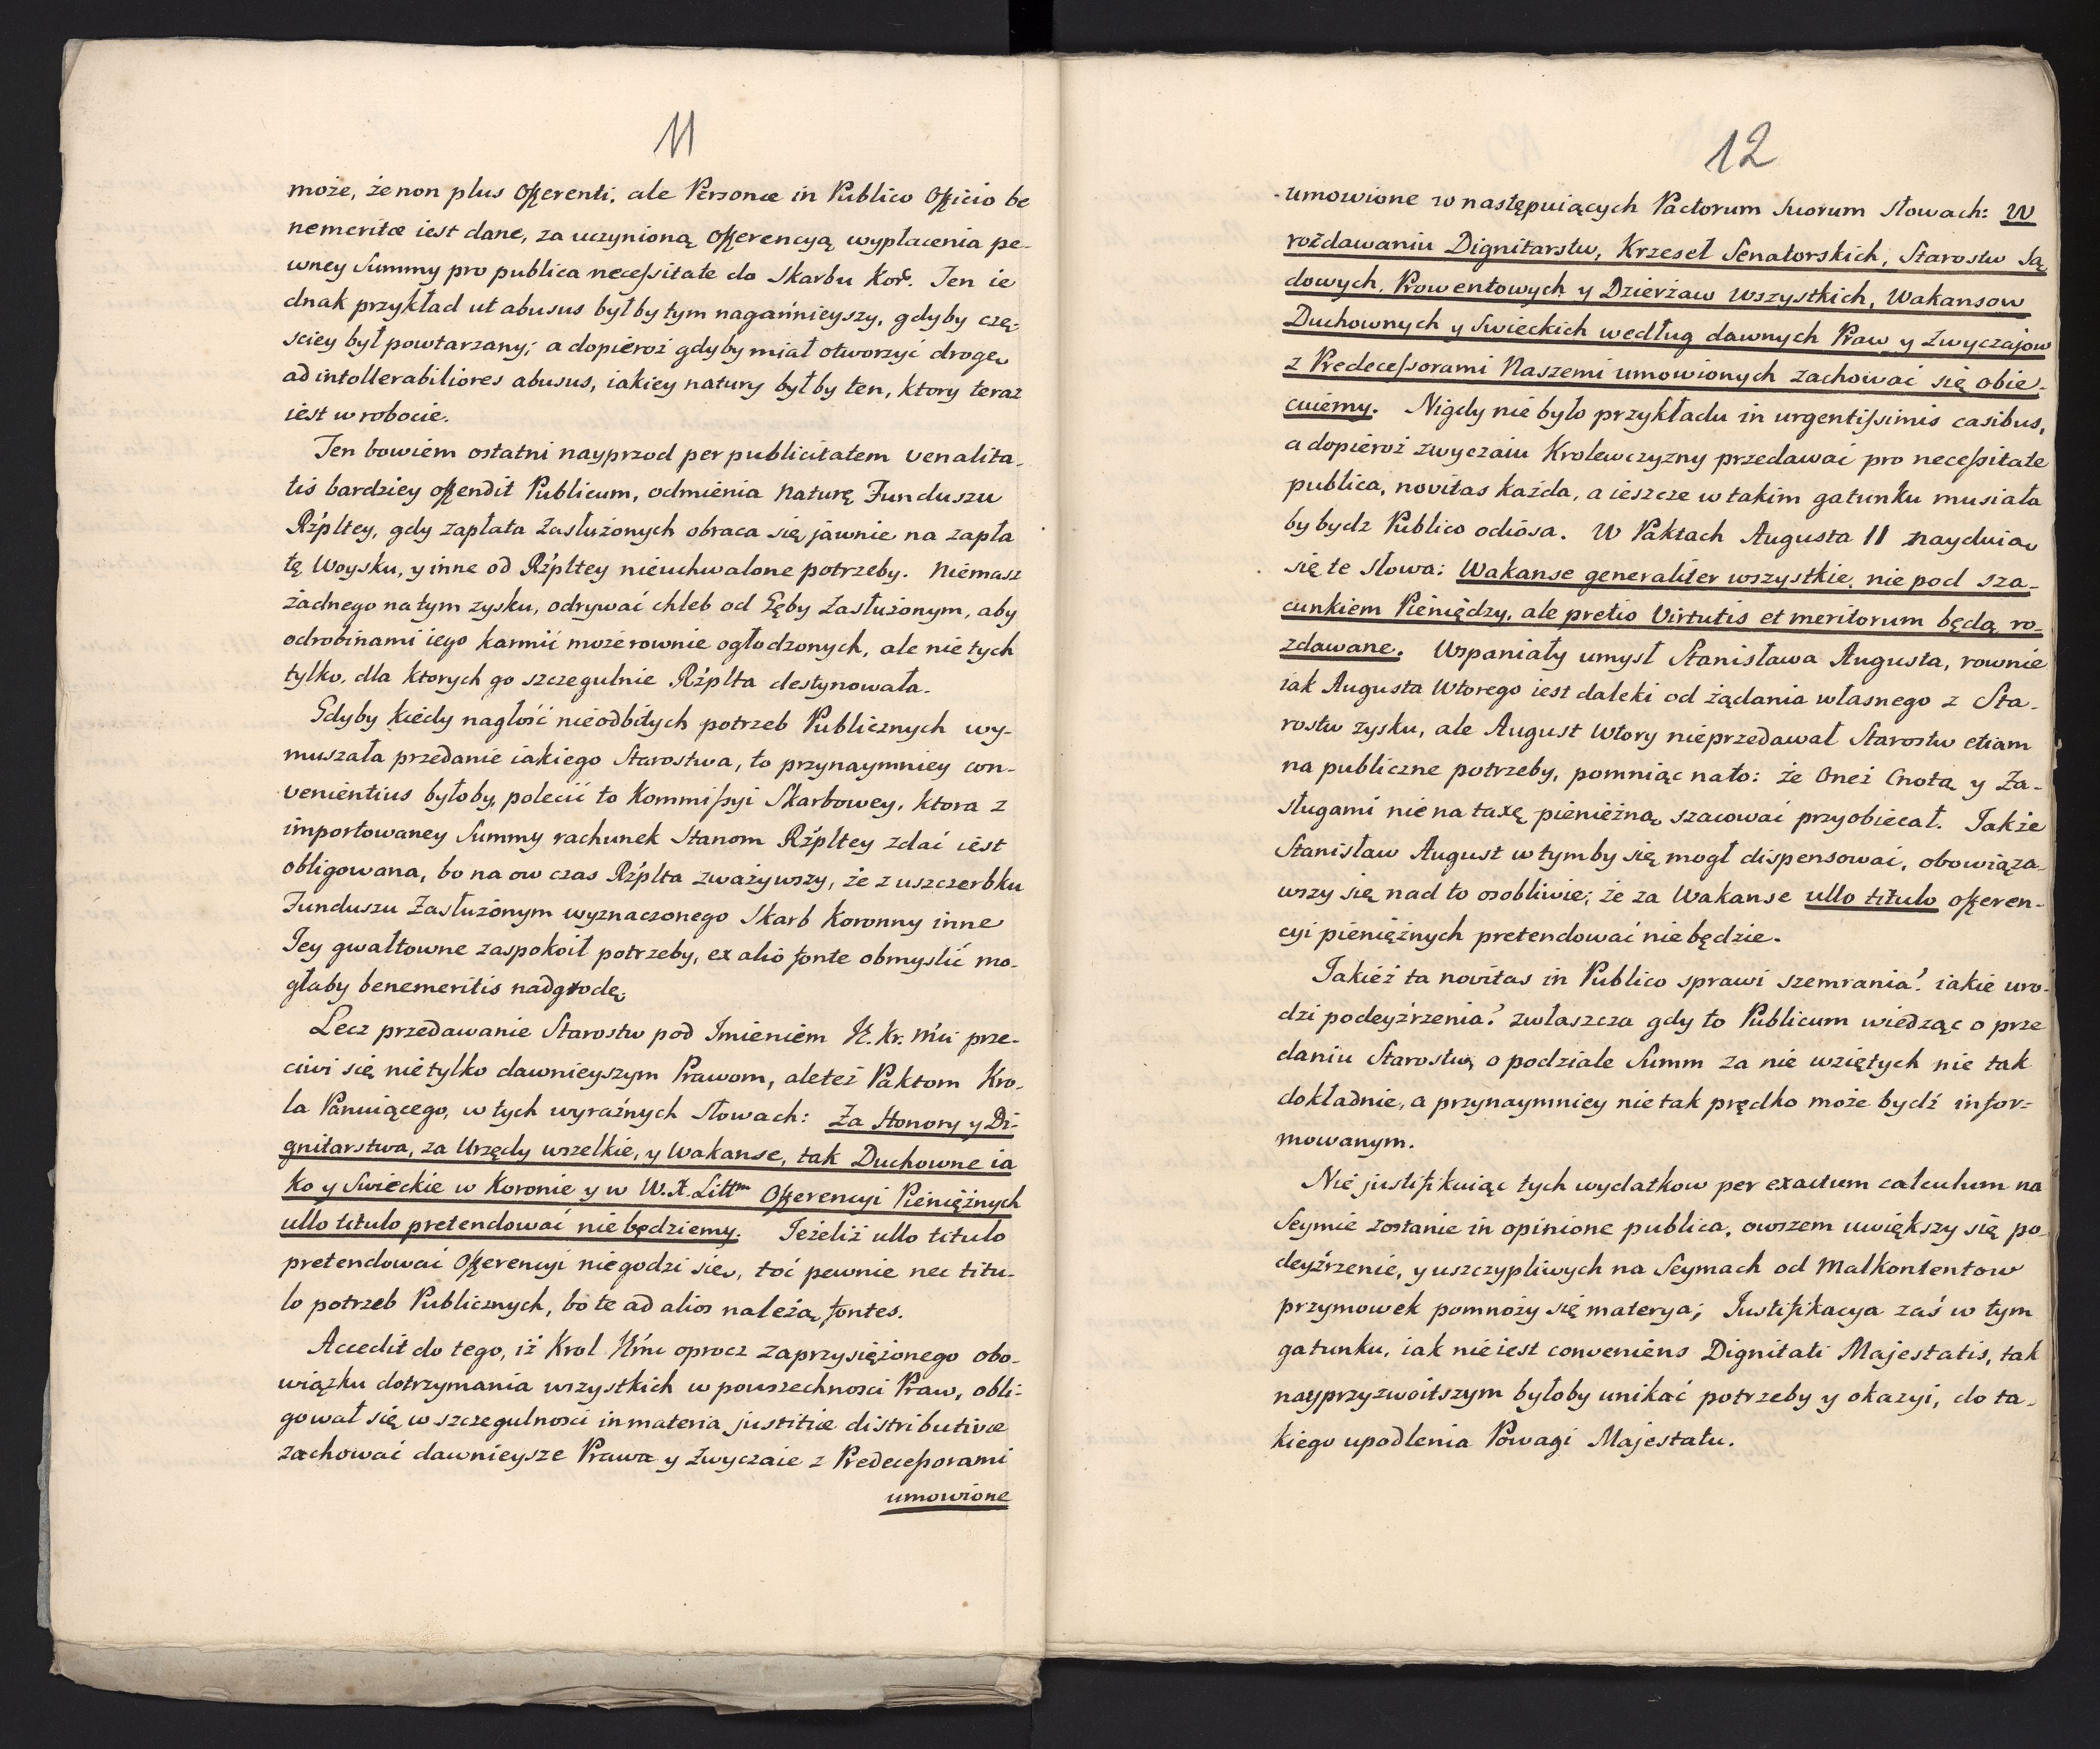 11
może, że non plus Offerenti, ale Personæ in Publico Officio be
nemeritæ iest dane, za uczynioną Offerencyą wypłacenia pe-
wney Summy pro publica necessitate do Skarbu Kor. Ten ie
dnak przykład ut abusus byłby tym nagannieyszy, gdyby czę-
sciey był powtarzany; a dopieroż gdyby miał otworzyć drogę
ad intollerabiliores abusus, iakiey natury byłby ten, ktory teraz
iest w robocie.
Ten bowiem ostatni nayprzod per publicitatem venalita-
tis bardziey offendit Publicum, odmienia Naturę Funduszu
Rżpltey, gdy zapłata Zasłużonych obraca się jawnie na zapła
tę Woysku, y inne od Rżpltey nieuchwalone potrzeby. Niemasz
żadnego na tym zysku, odrywać chleb od Gęby Zasłużonym, aby
odrobinami iego karmić może rownie ogłodzonych, ale nie tych
tylko, dla ktorych go szczegulnie Rżplta destynowała.
Gdyby kiedy nagłość nieodbitych potrzeb Publicznych wy-
muszała przedanie iakiego Starostwa, to przynaymniey con-
venientius byłoby, polecić to Kommissyi Skarbowey, ktora z
importowaney Summy rachunek Stanom Rżpltey zdać iest
obligowana, bo na ow czas Rżplta zważywszy, że z uszczerbku
Funduszu Zasłużonym wyznaczonego Skarb Koronny inne
Jey gwałtowne zaspokoił potrzeby, ex alio fonte obmyslić mo-
głaby benemeritis nadgrodę.
Lecz przedawanie Starostw pod Imieniem J. Kr. Mći prze-
ciwi się nietylko dawnieyszym Prawom, ale też Paktom Kro-
la Panuiącego, w tych wyraźnych Słowach: Za Honory y Di-
gnitarstwa, za Urzędy wszelkie, y Wakanse, tak Duchowne ia
ko y Swieckie w Koronie y w W. X. Littm Offerencyi Pieniężnych
ullo titulo pretendować nie będziemy. Jeżeliż ullo titulo
pretendować Offerencyi niegodzi się, toć pewnie nec titu-
lo potrzeb Publicznych, bo te ad alios należą fontes.
Accedit do tego, iż Krol Jmć oprocz zaprzysiężonego obo-
wiązku dotrzymania wszystkich w powszechnosci Praw, obli-
gował się w szczegulnosci in materia justitiæ distributivæ
zachować dawnieysze Prawa y zwyczaie z Predecessorami
umowione
12
umowione w następuiących Pactorum Suorum Słowach: W
rozdawaniu Dignitarstw, Krzeseł Senatorskich, Starostw Są
dowych, Prowentowych y Dzierżaw Wszystkich, Wakansow
Duchownych y Swieckich według dawnych Praw y Zwyczajow
z Predecessorami Naszemi umowionych zachować się obie-
cuiemy. Nigdy nie było przykładu in urgentissimis casibus,
a dopieroż zwyczaiu Krolewczyzny przedawać pro necessitate
publica, novitas każda, a ieszcze w takim gatunku musiała
by bydz Publico odiosa. W Paktach Augusta II znayduią
się te słowa: Wakanse generaliter wszystkie, nie pod sza-
cunkiem Pieniędzy, ale pretio Virtutis et meritorum będą ro-
zdawane. Wspaniały umysł Stanisława Augusta, rownie
iak Augusta Wtorego iest daleki od żądania własnego z Sta-
rostw zysku, ale August Wtory nieprzedawał Starostw etiam
na publiczne potrzeby, pomniąc na to: że Oneż Cnotą y Za-
sługami nie na taxę pieniężną szacować przyobiecał. Jakże
Stanisław August w tym by się mogł dispensować, obowiąza-
wszy się nad to osobliwie; że za Wakanse ullo titulo offeren-
cyi pieniężnych pretendować nie będzie.
Jakież ta novitas in Publico sprawi szemrania? iakie uro-
dzi podeyźrzenia? zwłaszcza gdy to Publicum wiedząc o prze
daniu Starostw, o podziale Summ za nie wziętych nie tak
dokładnie, a przynaymniey nie tak prędko może bydź infor-
mowanym.
Nie justifikuiąc tych wydatkow per exactum calculum na
Seymie zostanie in opinione publica, owszem uwiększy się po-
deyźrzenie, y uszczypliwych na Seymach od Malkontentow
przymowek pomnoży się materya; Justifikacya zaś w tym
gatunku, iak nie iest conveniens Dignitati Majestatis, tak
nayprzyzwoitszym byłoby unikać potrzeby y okazyi, do ta-
kiego upodlenia Powagi Majestatu.